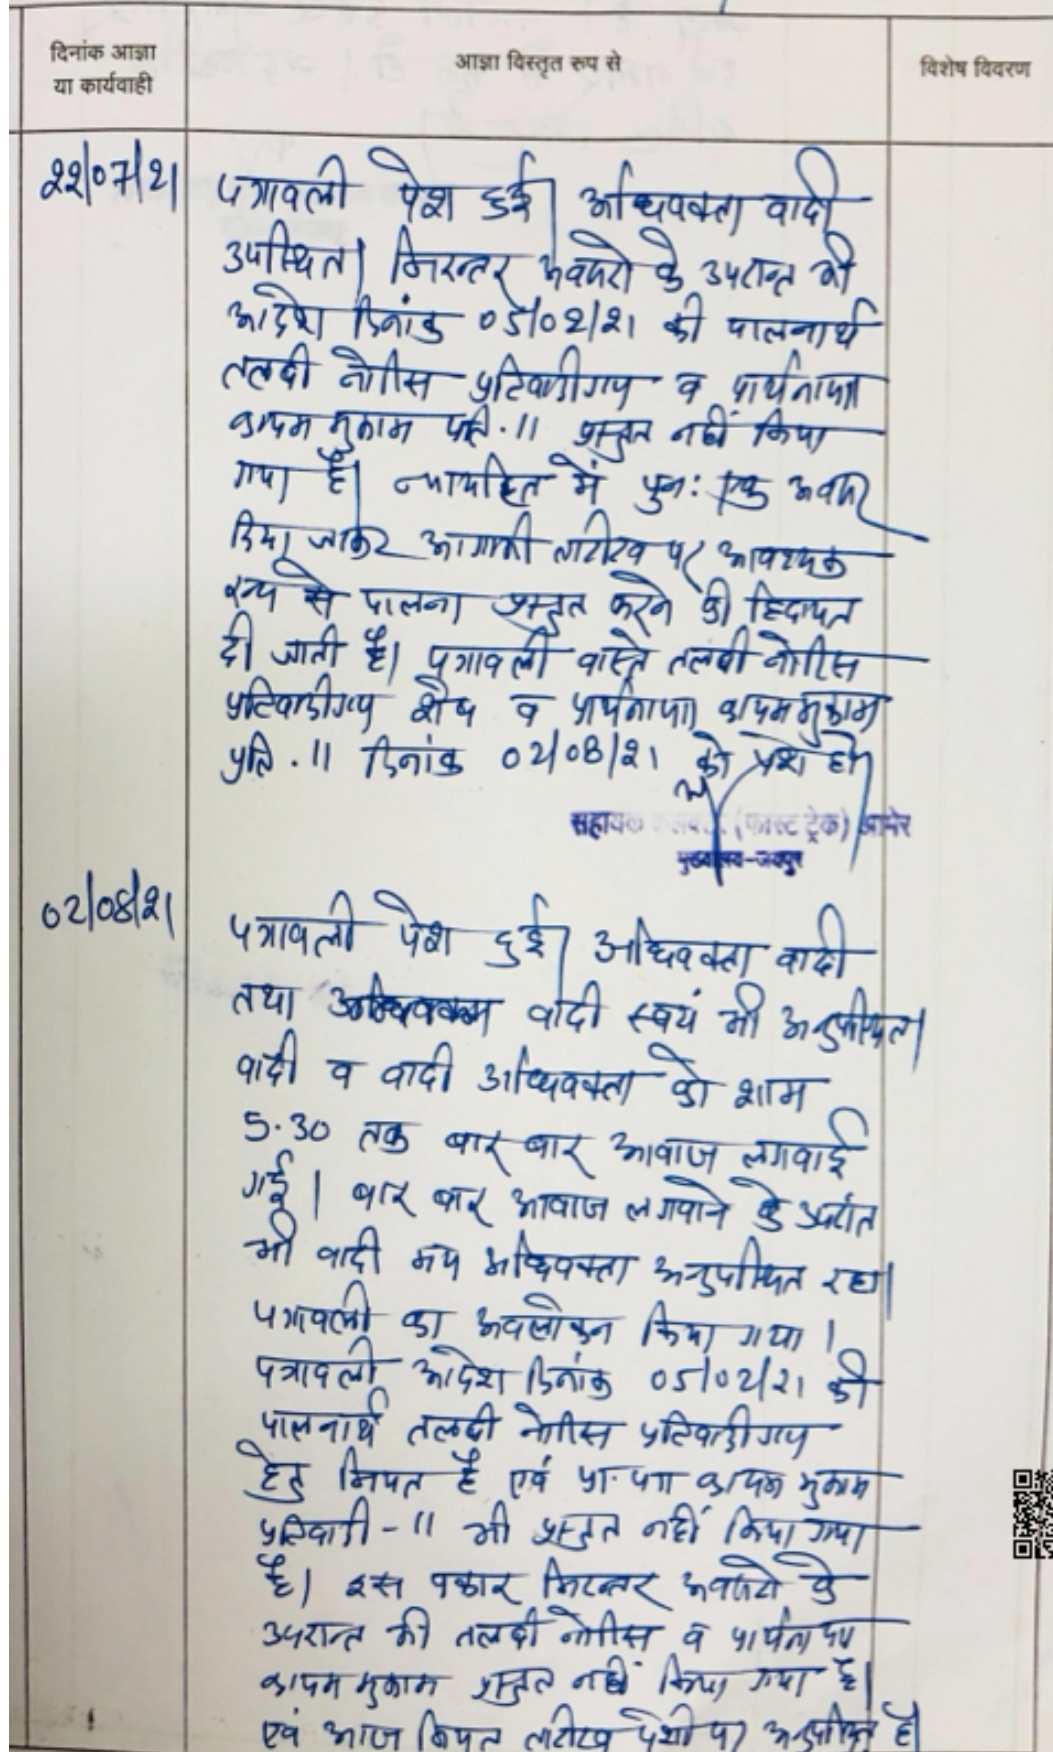 दिनांक आज्ञा
या कार्यवाही
आज्ञा विस्तृत रुप से
विशेष विवरण
22/07/21
पत्रावली पेश हुई। अधिवक्ता वादी
उपस्थित। निरन्तर अवसरो के उपरान्त भी
आदेश दिनांक 05/02/21 की पालनार्थ
तलबी नोटिस प्रतिवादीगण व प्रार्थनापत्र
कायम मुकाम प्रति.11 प्रस्तुत नहीं किया
गया है। न्यायहित में पुन: एक अवसर
दिया जाकर आगामी तारीख पर आवश्यक
रूप से पालना प्रस्तुत करने की हिदायत
दी जाती है। पत्रावली वास्ते तलबी नोटिस
प्रतिवादीगण शेष व प्रार्थनापत्र कायममुकाम
प्रति.11 दिनांक 02/08/21 को पेश हो।
सहायक कलक्टर (फास्ट ट्रेक) आमेर
मुख्यालय-जयपुर
02/08/21
पत्रावली पेश हुई। अधिवक्ता वादी
तथा वादी स्वयं भी अनुपस्थित।
वादी व वादी अधिवक्ता को शाम
5.30 तक बार बार आवाज लगवाई
गई। बार बार आवाज लगवाने के उपरांत
भी वादी मय अधिवक्ता अनुपस्थित रहा।
पत्रावली का अवलोकन किया गया।
पत्रावली आदेश दिनांक 05/02/21 की
पालनार्थ तलबी नोटिस प्रतिवादीगण
हेतु नियत है एवं प्रा.पत्र कायम मुकाम
प्रतिवादी-11 भी प्रस्तुत नहीं किया गया
है। इस प्रकार निरन्तर अवसरो के
उपरान्त भी तलबी नोटिस व प्रार्थना पत्र
कायम मुकाम प्रस्तुत नहीं किया गया है।
एवं आज नियत तारीख पेशी पर अनुपस्थित है।